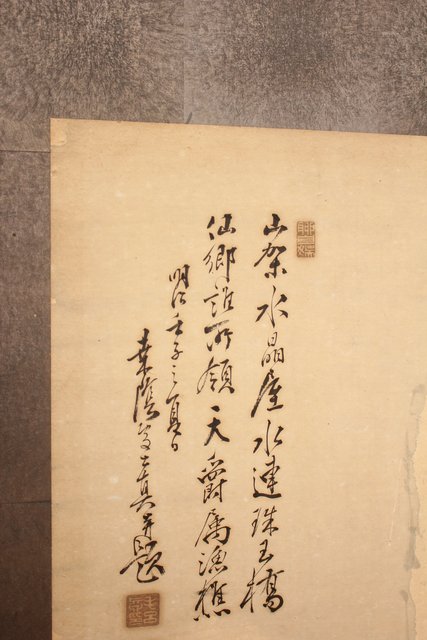 山架水晶屋水連珠玉橋
仙郷誰所領天爵属漁樵
明治壬子之夏日
桒隂寫并題